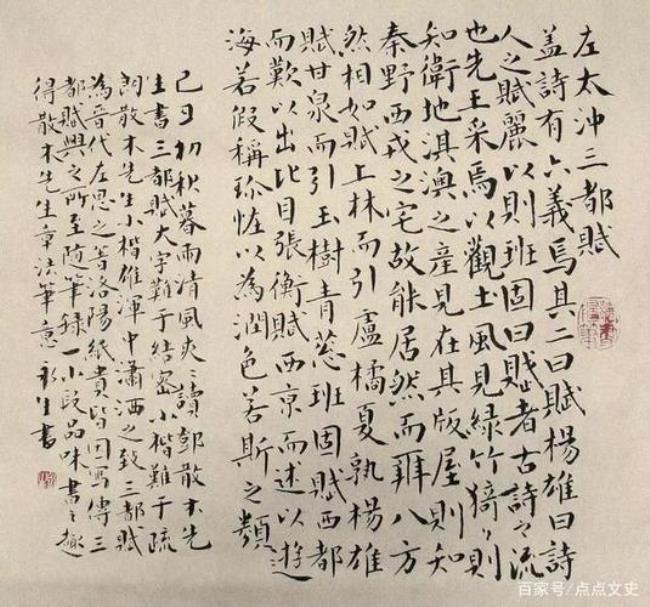 左太沖三都賦
蓋詩有六義焉其二曰賦楊雄曰詩
人之賦麗以則班固曰賦者古詩之流
也先王采焉以觀土風見綠竹猗〻則
知衛地淇澳之產見在其版屋則知
秦野西戎之宅故能居然而辨八方
然相如賦上林而引盧橘夏孰楊雄
賦甘泉而引玉樹青蔥班固賦西都
而歎以出比目張衡賦西京而述以遊
海若假稱珍怪以為潤色若斯之類
己丑初秋暮雨清風爽〻讀鄧散木先
生書三都賦大字難于結密小楷難于疏
朗散木先生小楷雄渾中瀟洒之致三都賦
為晉代左思之著洛陽紙貴皆因寫傳三
都賦興之所至随筆録一小段品味書之趣
得散木先生章法筆意 永生書
百家号/点点文史